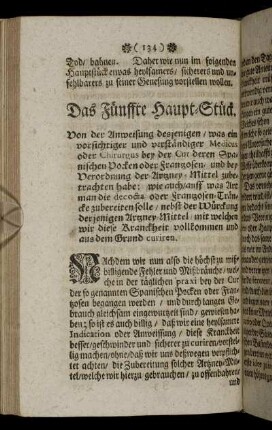 ( 134 )
Tod / bahnen. Daher wie nun im folgenden
Hauptstück etwas heylsamers / sicherers und un-
fehlbarers zu seiner Genesung vorstellen wollen.
Das Fünffte Haupt-Stück.
Von der Anweisung desjenigen / was ein
vorsichtiger und verständiger Medicus
oder Chirurgus bey der Cur derer Spa-
nischen Pocken oder Frantzosen / und bey
Verordnung der Artzney-Mittel zube-
trachten habe: wie auch / auff was Art
man die decocta oder Frantzosen-Trän-
cke zubereiten solle / nebst der Würckung
derjenigen Artzney-Mittel / mit welchen
wir diese Kranckheit vollkommen und
aus dem Grund curiren.
Nachdem wir nun also die höchst zu miß-
billigende Fehler und Mißbräuche / wel-
che in der täglichen praxi bey der Cur
der so genannten Spanischen Pocken oder Fran-
tzosen begangen werden / und durch langen Ge-
brauch gleichsam eingewurtzelt sind / gewiesen ha-
ben; so ist es auch billig / daß wir eine heylsamere
Indication oder Anweisung / diese Kranckheit
besser / geschwinder und sicherer zu curiren / vorstel-
lig machen / ohne / daß wir uns deßwegen verpflich-
tet achten / die Zubereitung solcher Artzney-Mit-
tel / welche wir hierzu gebrauchen / zu offenbahren /
und